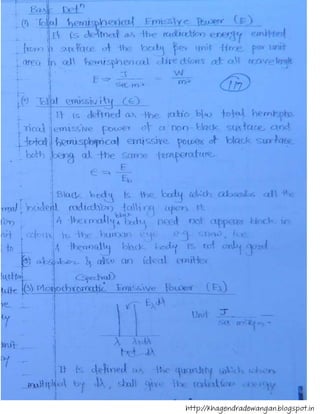 Basic Defn
(1) Total hemispherical Emissive Power (E)
It is defined as the radiation energy emitted
from a surface of the body per unit time per unit
area in all hemispherical directions at all wavelength
E → J / sec m² = W / m²
(2) Total emissivity (ε)
It is defined as the ratio b/w total hemisphe
rical emissive power of a non-black surface and
total hemispherical emissive power of black surface
both being at the same temperature.
ε → E / Eb
Black body is the body which absorbs all the
incident radiation falling upon it.
A thermally black body need not appears black in
colour to the human eye e.g. snow, ice
A thermally black body is not only good
absorber & also an ideal emitter
(Spectral)
(3) Monochromatic Emissive Power (Eλ)
Eλ dλ
Unit J
λ λ+dλ
dλ
It is defined as the quantity which when
multiplied by dλ, shall give the radiation energy
http://khagendradewangan.blogspot.in